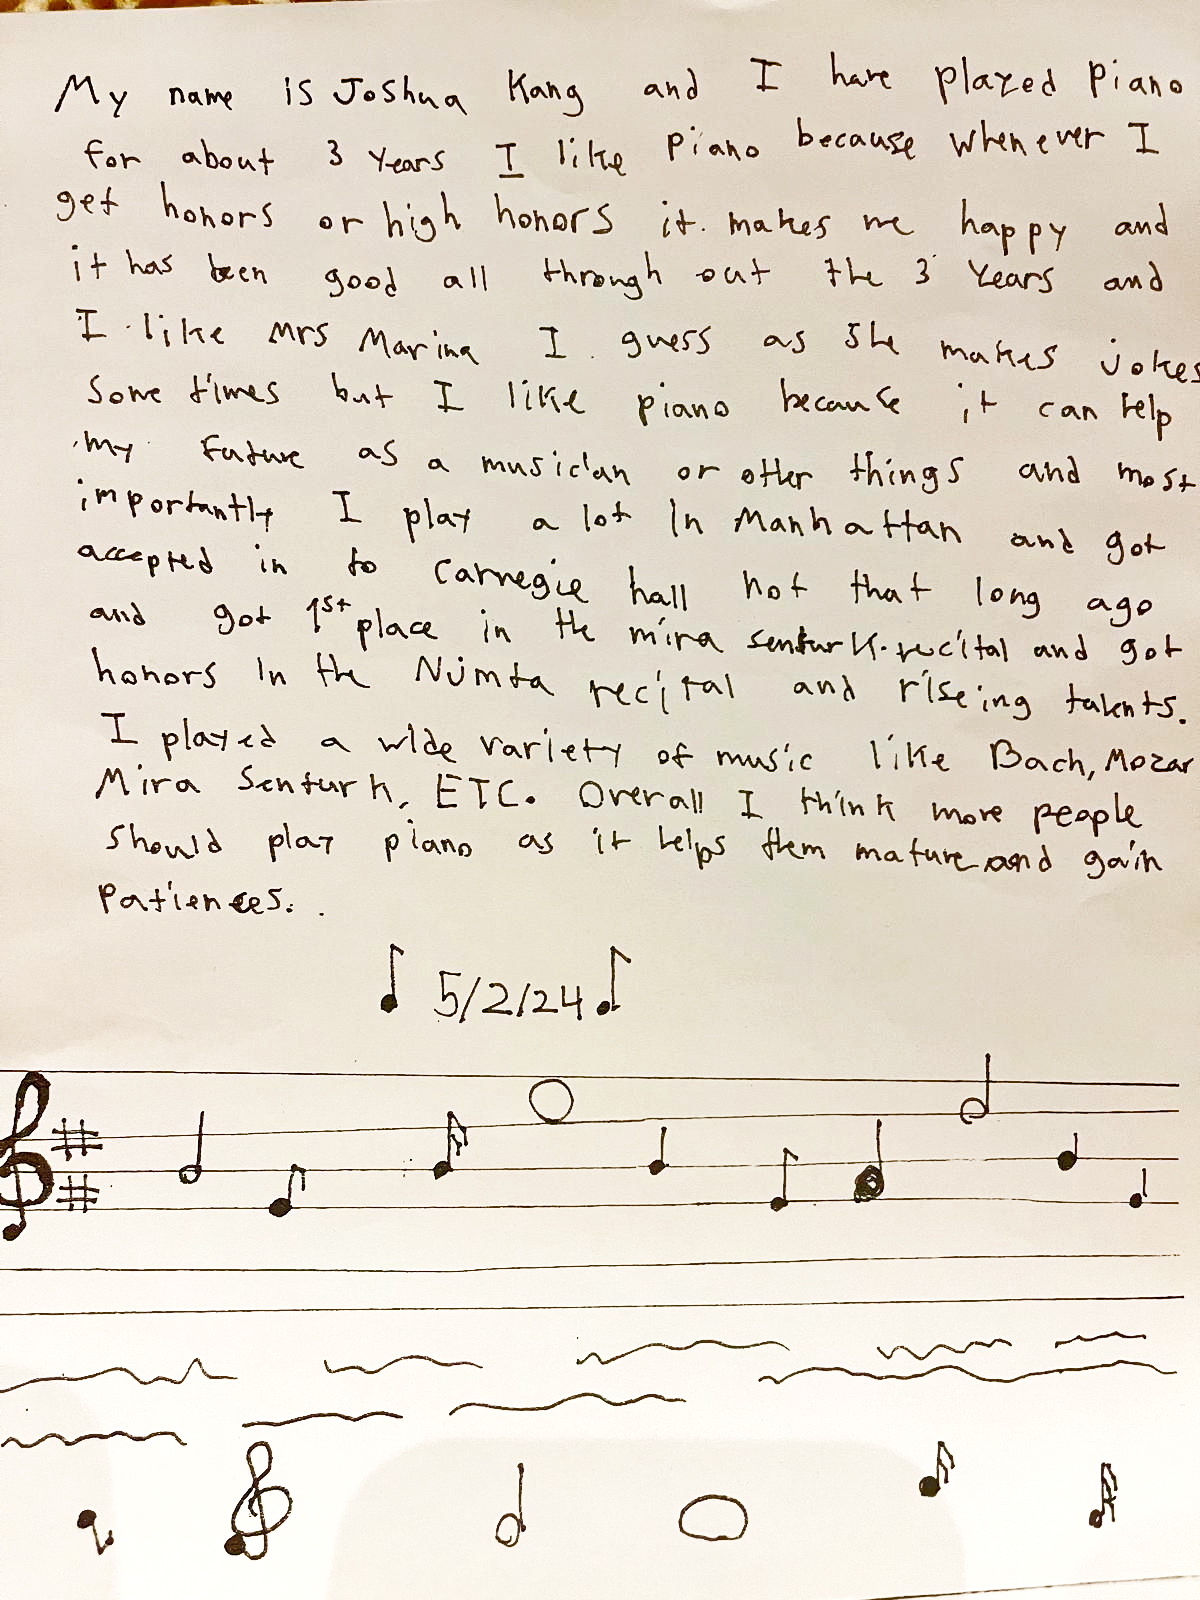 My name is Joshua Kang and I have played Piano
for about 3 Years I like Piano because whenever I
get honors or high honors it makes me happy and
it has been good all through out the 3 Years and
I like Mrs Marina I guess as She makes jokes
Some times but I like piano because it can help
my future as a musician or other things and most
importantly I play a lot In Manhattan and got
accepted in to Carnegie hall not that long ago
and got 1st place in the mira senturk recital and got
honors In the recital and riseing talents.
I played a wide variety of music like Bach, Mozar
Mira Senturk, ETC. Overall I think more people
should play piano as it helps them mature and gain
Patiences.
5/2/24